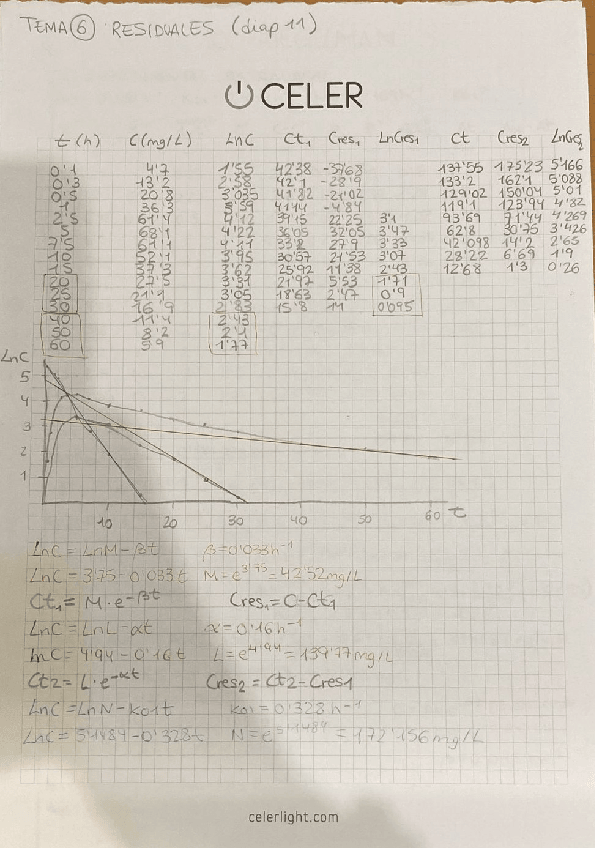 TEMA 6 RESIDUALES (diap 11)
CELER
t (h) C(mg/L) LnC Ct1 Cres1 LnCres1 Ct Cres2 LnCres2
0'1 4'7 1'55 42'38 -37'68 137'55 175'23 5'166
0'3 13'2 2'58 42'1 -28'9 133'2 162'1 5'088
0'5 20'8 3'035 41'82 -21'02 129'02 150'04 5'01
1 36'3 3'59 41'14 -4'84 119'1 123'94 4'82
2'5 61'4 4'12 39'15 22'25 3'1 93'69 71'44 4'269
5 68'1 4'22 36'05 32'05 3'47 62'8 30'75 3'426
7'5 61'1 4'11 33'2 27'9 3'33 42'098 14'2 2'65
10 52'1 3'95 30'57 21'53 3'07 28'22 6'69 1'9
15 37'3 3'62 25'92 11'38 2'43 12'68 1'3 0'26
20 27'5 3'31 21'97 5'53 1'71
25 21'1 3'05 18'63 2'47 0'9
30 16'9 2'83 15'8 1'1 0'095
40 11'4 2'43
50 8'2 2'1
60 5'9 1'77
LnC
5
4
3
2
1
10 20 30 40 50 60 t
LnC = LnM - βt β = 0'033h⁻¹
LnC = 3'75 - 0'033t M = e^3'75 = 42'52mg/L
Ct1 = M · e^-βt Cres1 = C - Ct1
LnC = LnL - αt α = 0'16h⁻¹
lnC = 4'94 - 0'16t L = e^4'94 = 139'77mg/L
Ct2 = L · e^-αt Cres2 = Ct2 - Cres1
LnC = LnN - k01t k01 = 0'328h⁻¹
LnC = 5'1484 - 0'328t N = e^5'1484 = 172'156mg/L
celerlight.com